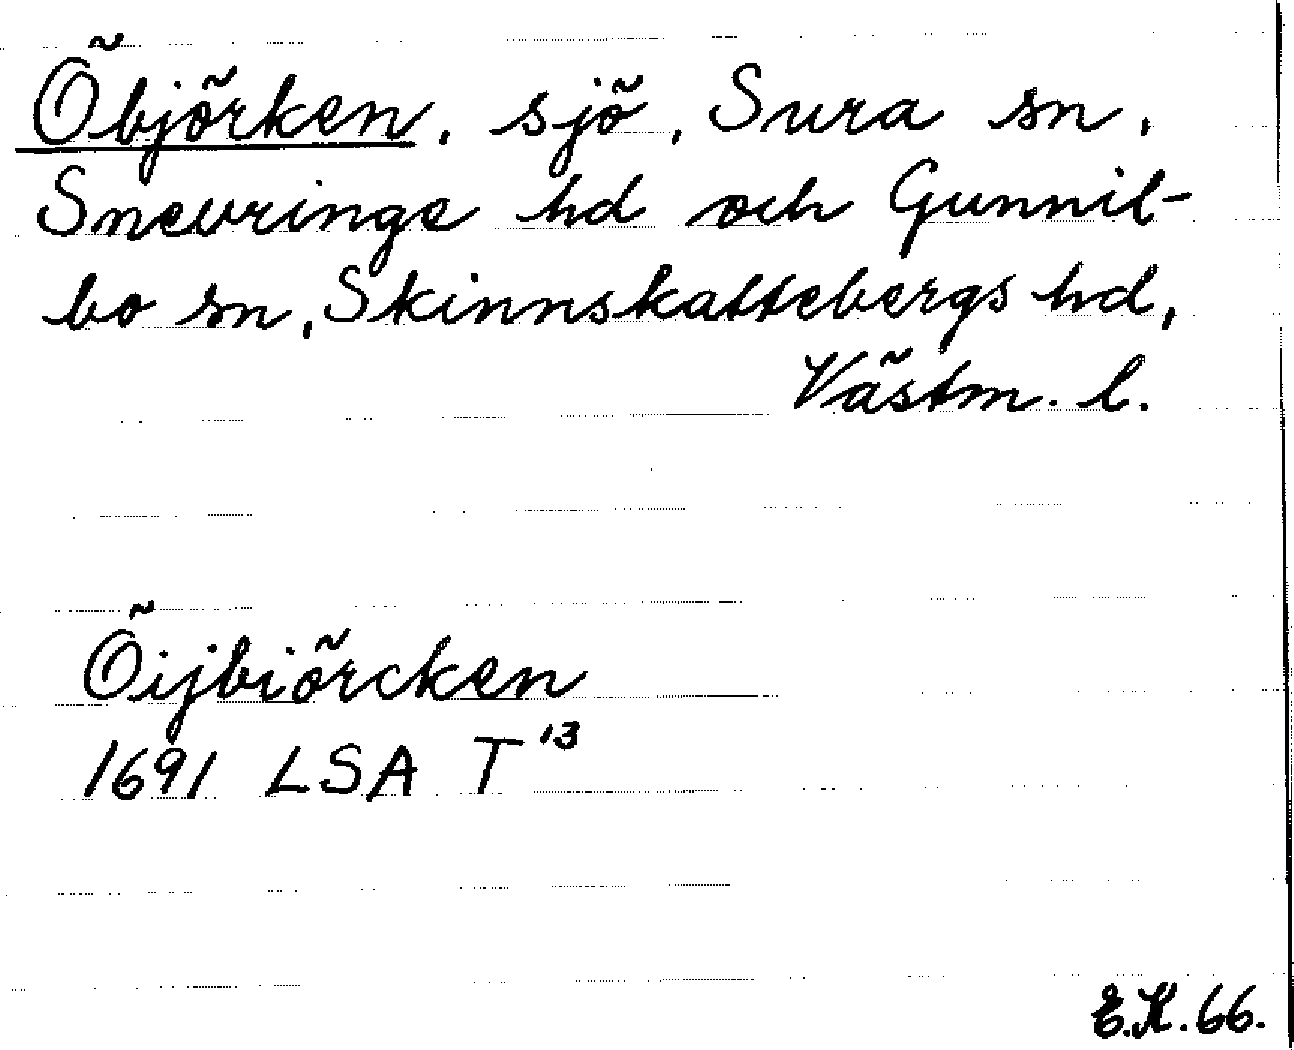 Öbjörken, sjö, Sura sn,
Snevringe hd och Gunnil-
bo sn, Skinnskattebergs hd,
Västm. l.
Öijbiörcken
1691 LSA T 13
E.K. 66.